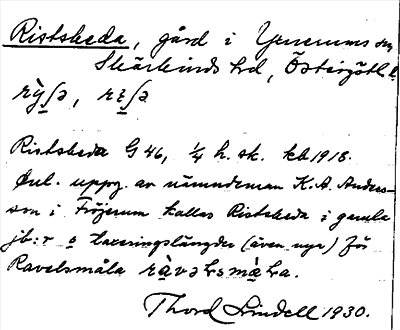 Ristsheda, gård i Yxnerums sn
Skärkinds hd, Östergötl. l.
Ristsheda G 46, 1/4 h. sk. kb 1918.
Enl. uppg. av nämndeman K. A. Anders-
son i Fröjerum kallas Ristsheda i gamla
jb:r o taxeringslängder (även nya) för
Ravelsmåla
Thord Lindell 1930.